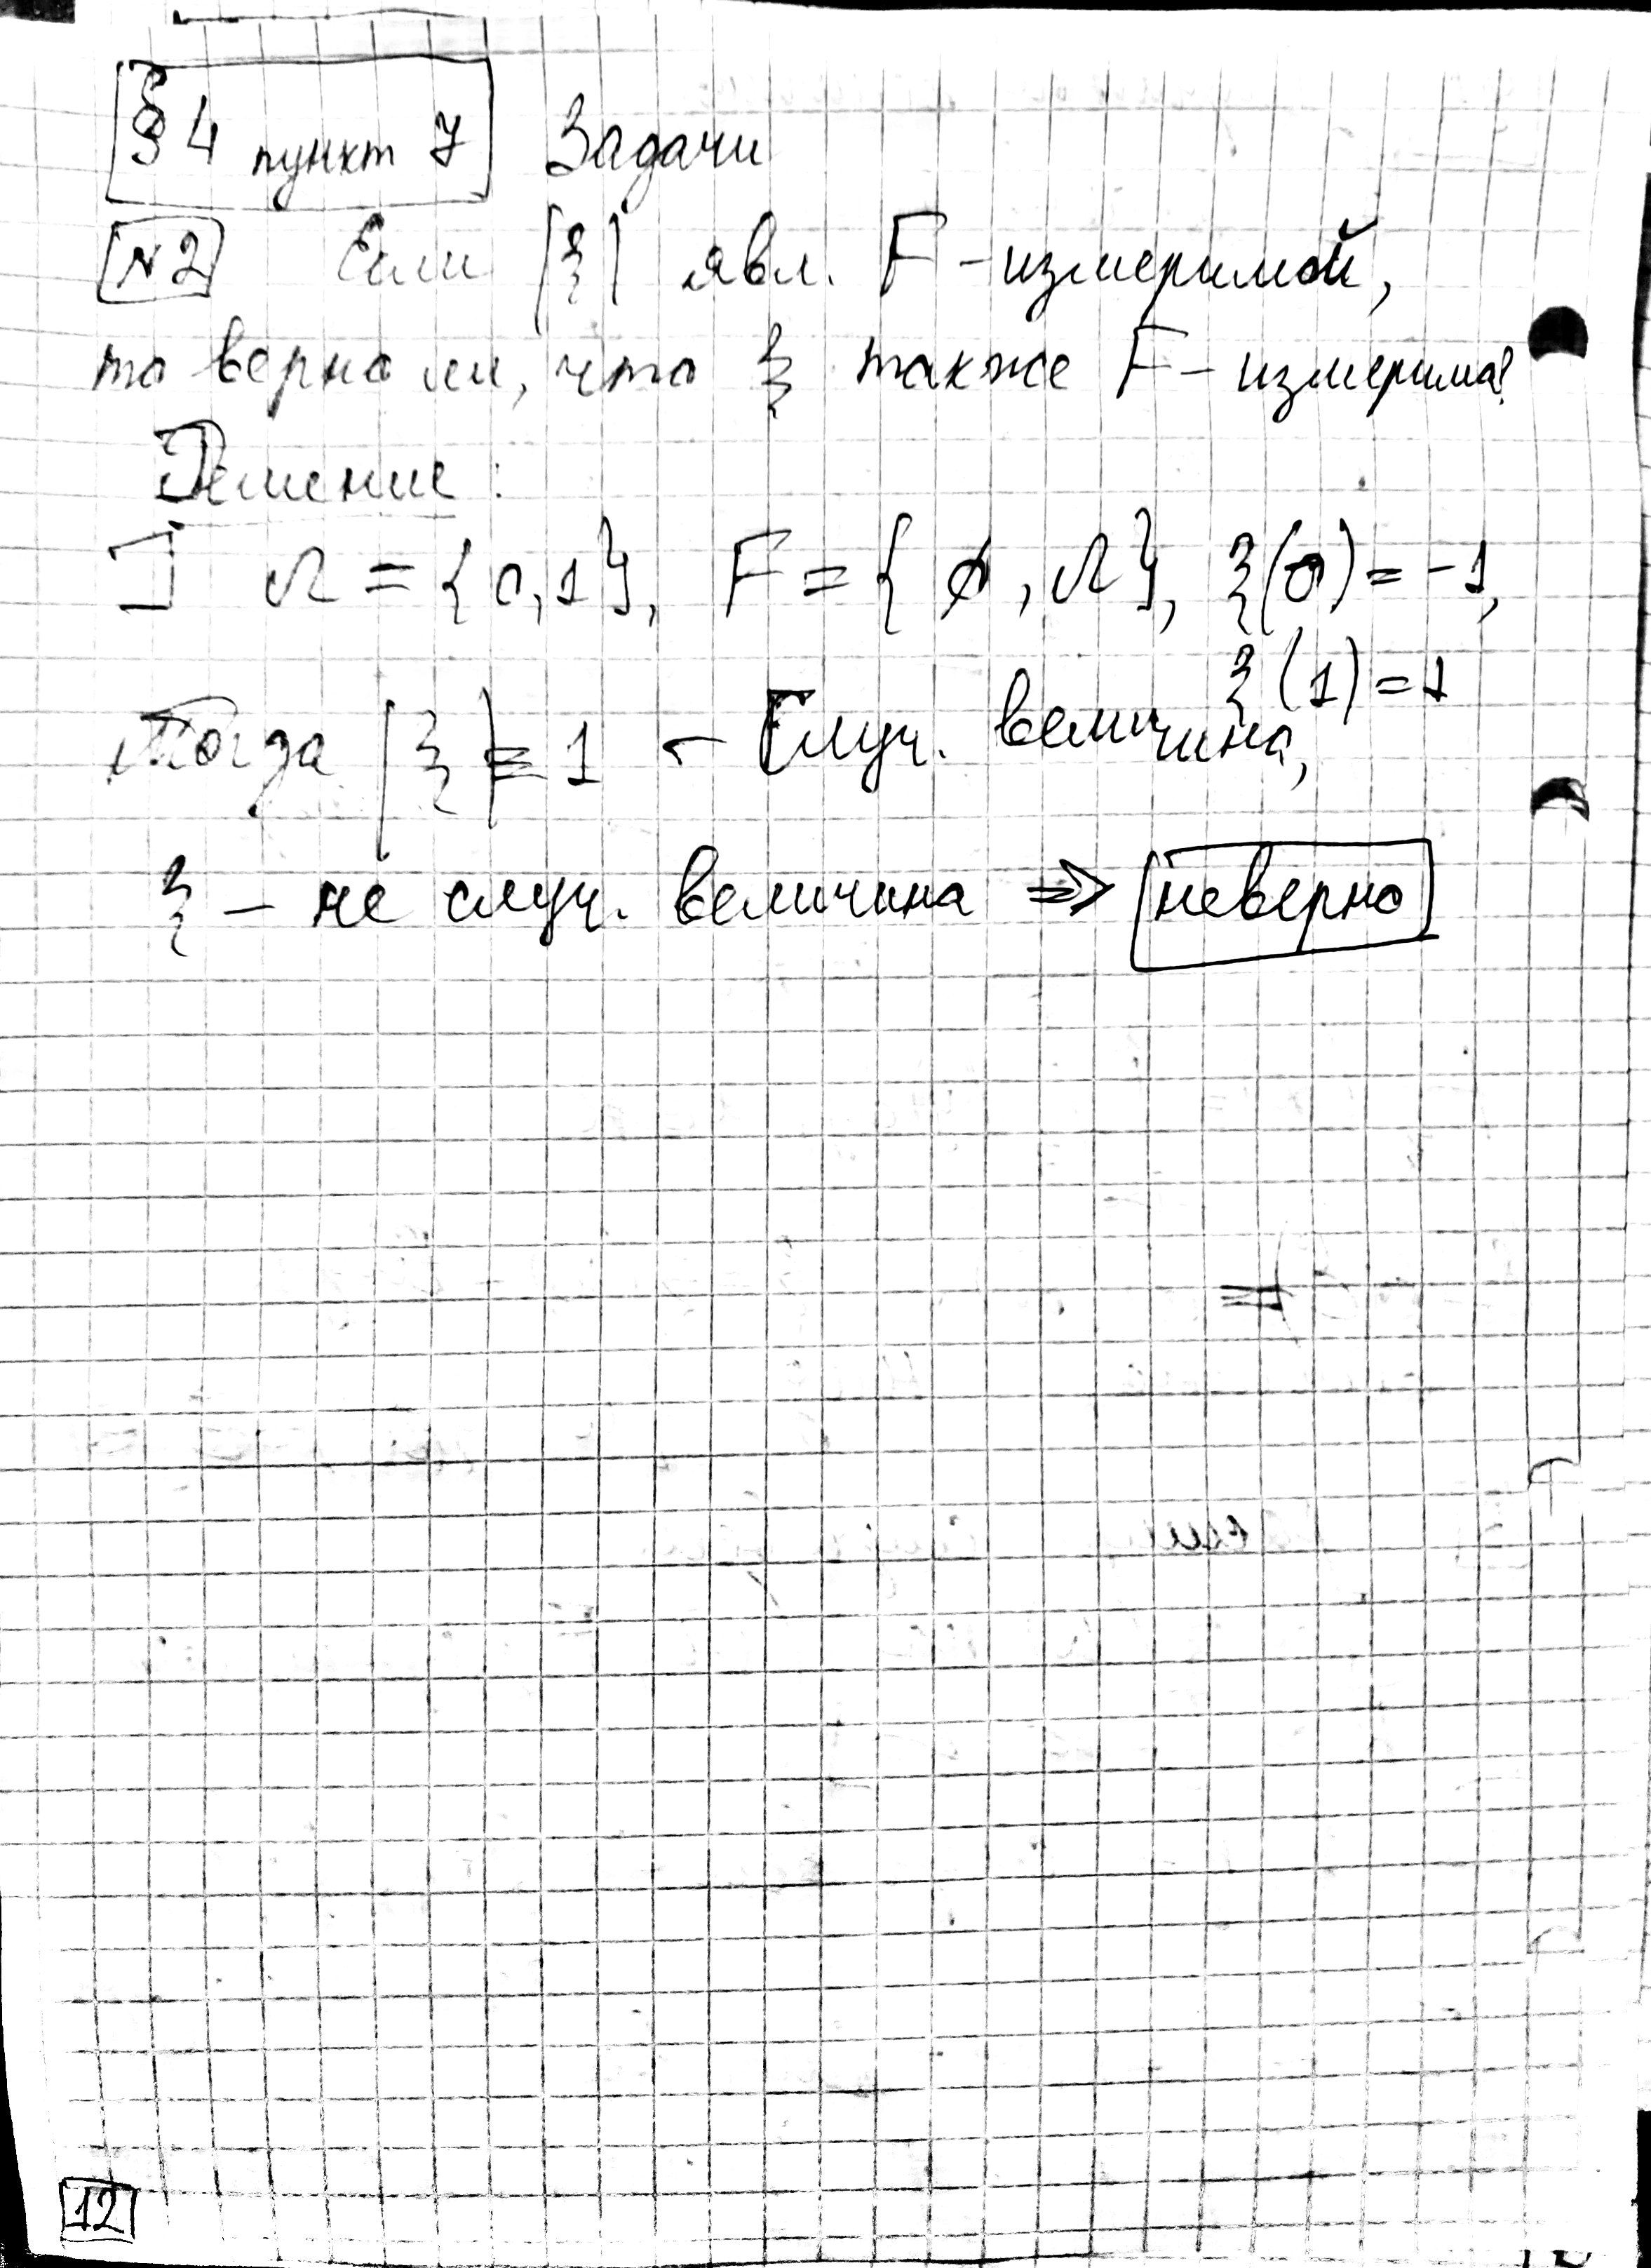 §4 пункт 7 Задачи
№2 Если |ξ| явл. F-измеримой,
то верно ли, что ξ также F-измерима?
Решение:
] Ω = {0,1}, F = {∅, Ω}, ξ(0) = -1,
ξ(1) = 1
Тогда |ξ| = 1 - Случ. величина,
ξ - не случ. величина ⇒ неверно
12